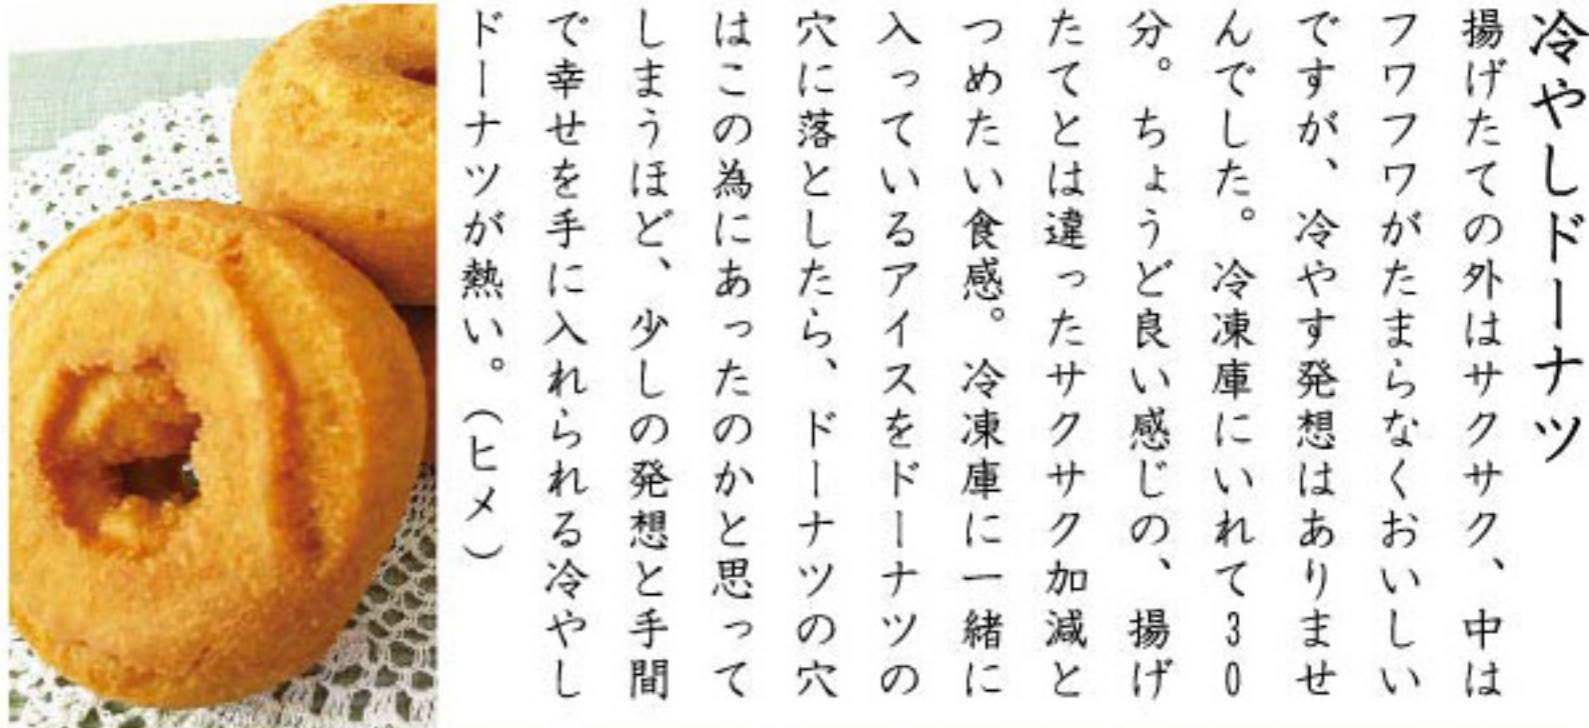 冷やしドーナツ
揚げたての外はサクサク、中は
フワフワがたまらなくおいしい
ですが、冷やす発想はありませ
んでした。冷凍庫にいれて30
分。ちょうど良い感じの、揚げ
たてとは違ったサクサク加減と
つめたい食感。冷凍庫に一緒に
入っているアイスをドーナツの
穴に落としたら、ドーナツの穴
はこの為にあったのかと思って
しまうほど、少しの発想と手間
で幸せを手に入れられる冷やし
ドーナツが熱い。（ヒメ）